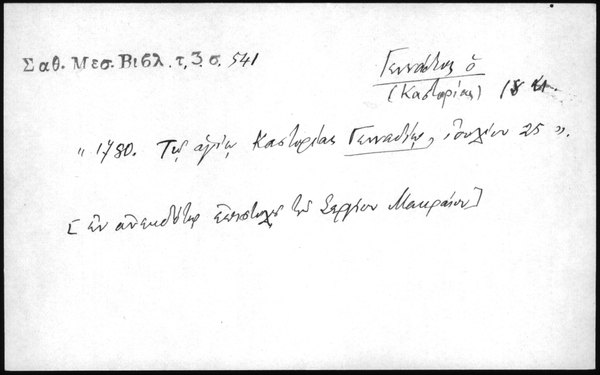 Σαθ. Μεσ. Βιβλ. τ, 3 σ. 541
Γεννάδιος ὁ
(Καστορίας) 18
" 1780. Τῷ ἁγίῳ Καστορίας Γενναδίῳ, ἰουλίου 25 ".
[ἐν ἀνεκδότῳ ἐπιστολῇ τοῦ Σεργίου Μακραίου]